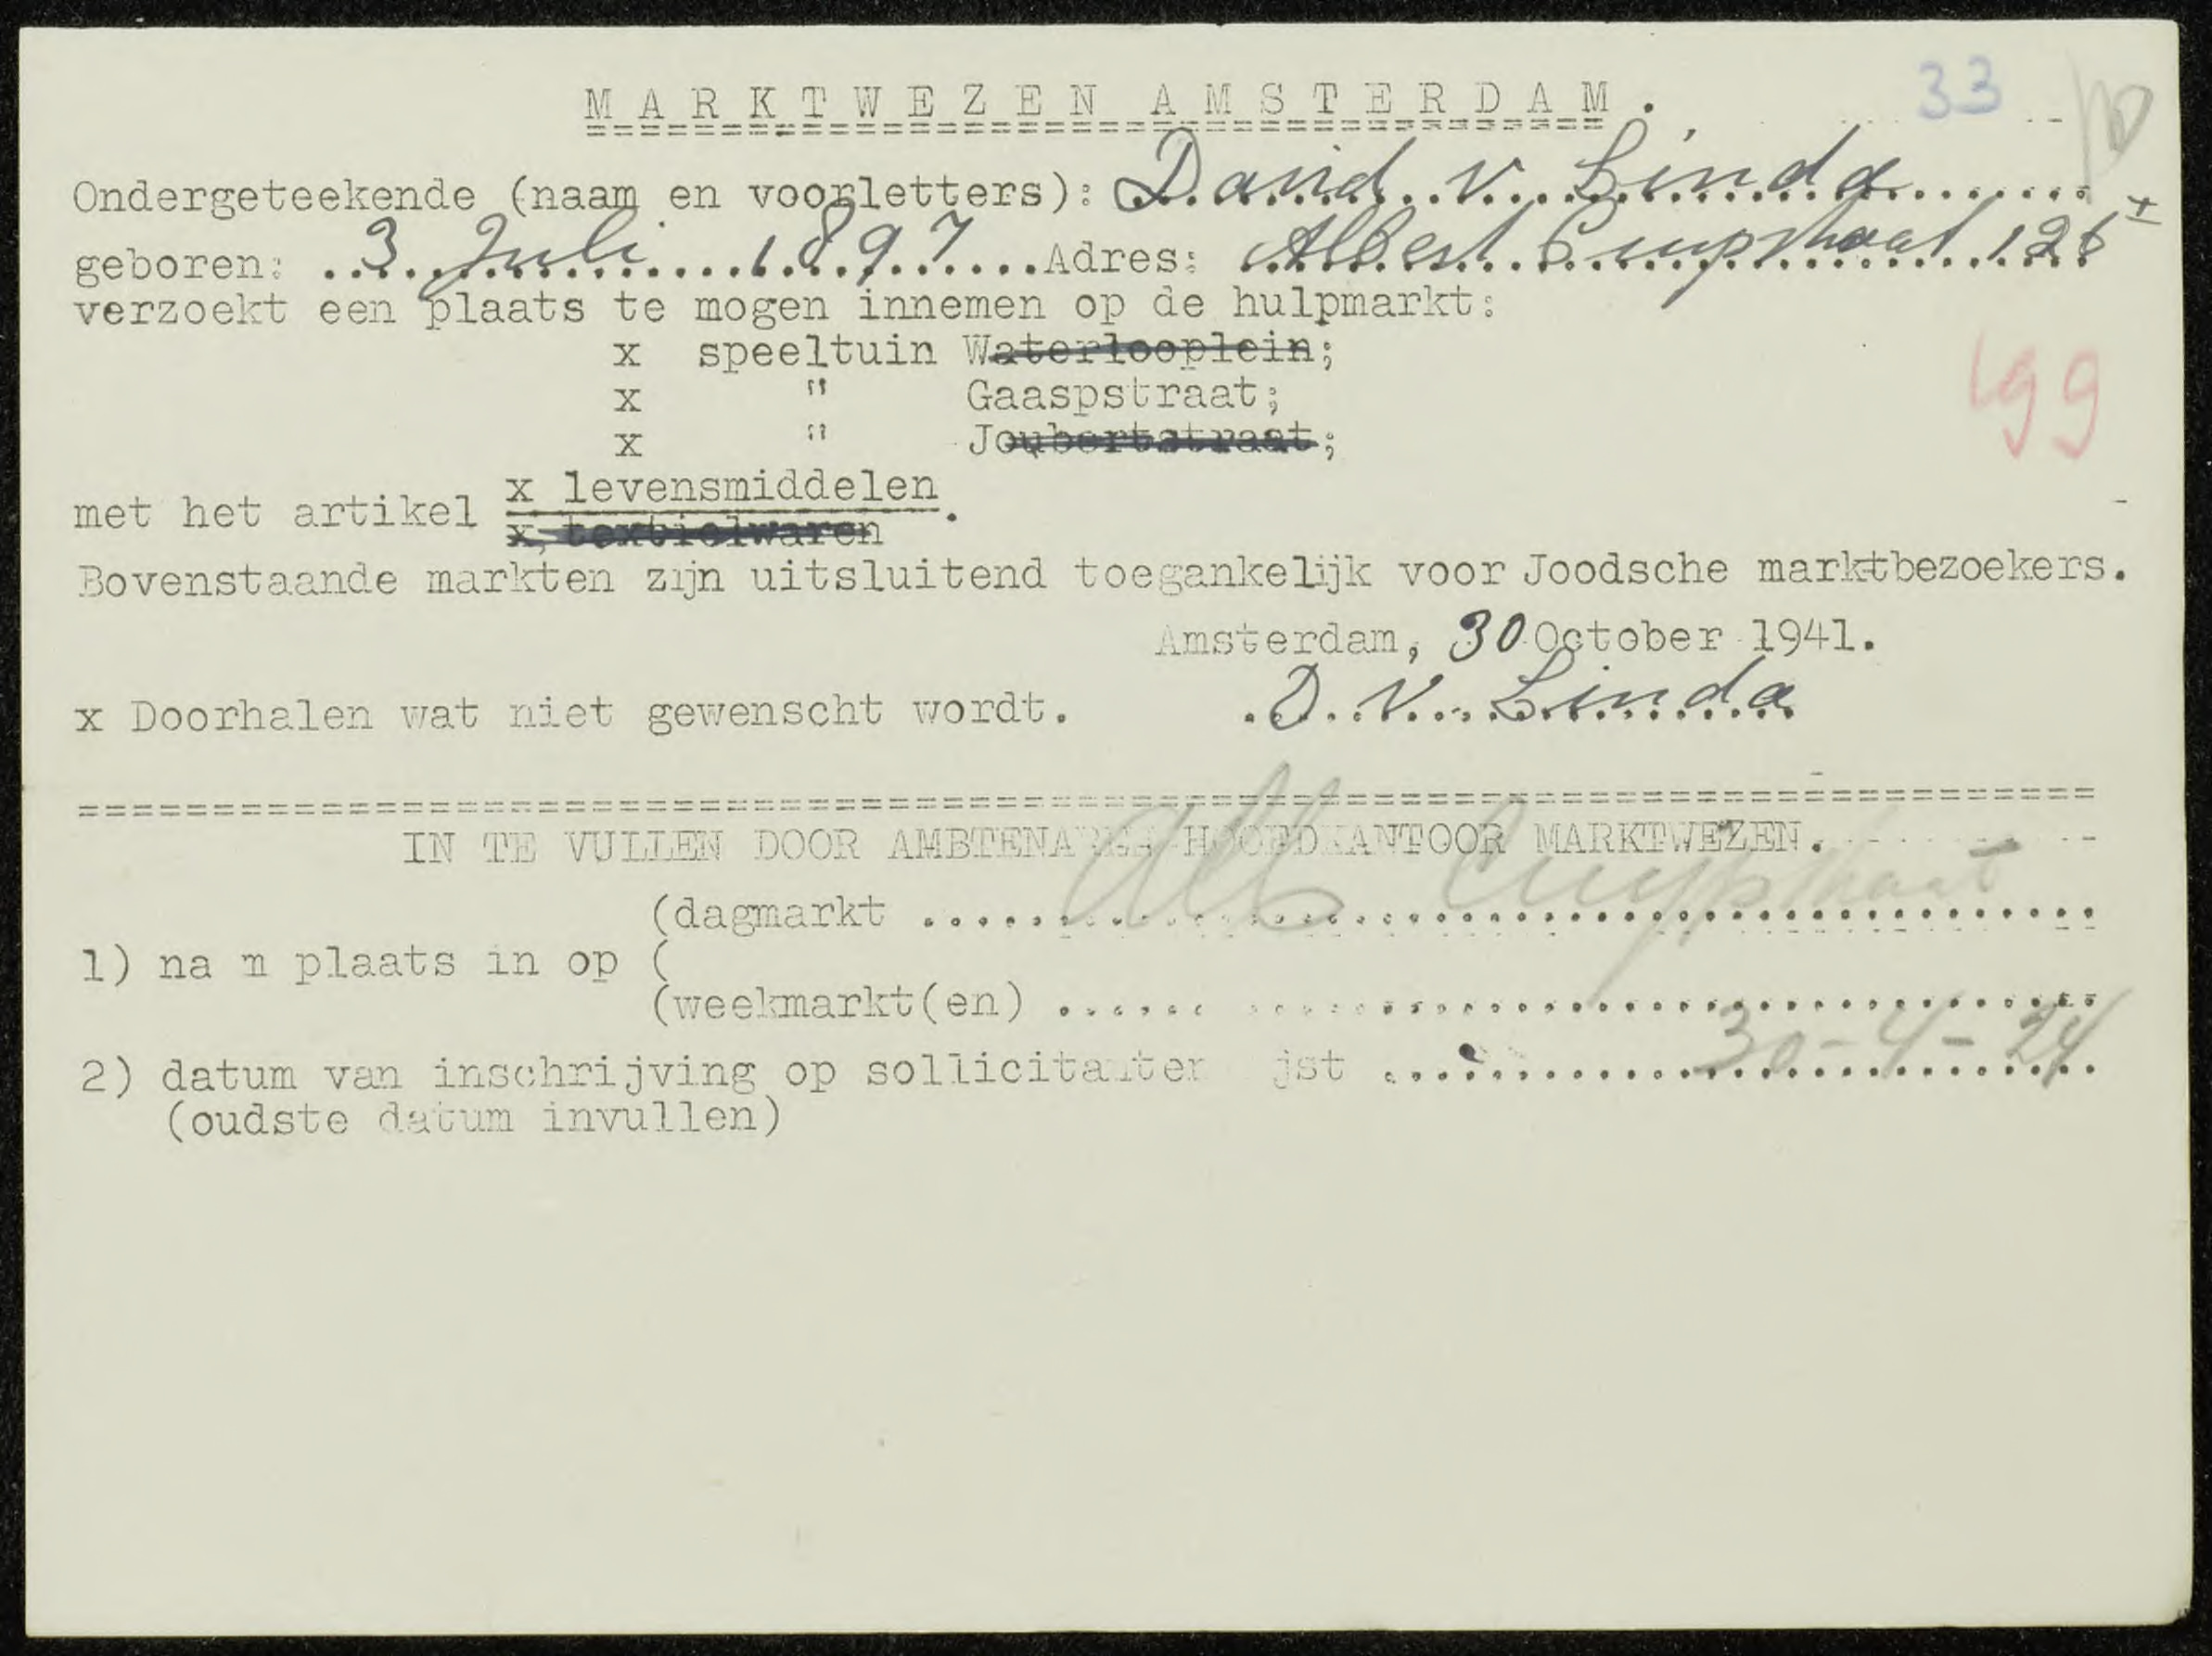 MARKTWEZEN AMSTERDAM.
33
Ondergeteekende (naam en voorletters): David v. Linda
geboren: 3 Juli 1897 Adres: Albert Cuypstraat 126 I
verzoekt een plaats te mogen innemen op de hulpmarkt:
x speeltuin Waterlooplein;
x " Gaaspstraat;
x " Joubertstraat;
199
met het artikel x levensmiddelen
x, textielwaren.
Bovenstaande markten zijn uitsluitend toegankelijk voor Joodsche marktbezoekers.
Amsterdam, 30 October 1941.
x Doorhalen wat niet gewenscht wordt. D. v. Linda
IN TE VULLEN DOOR AMBTENAREN HOOFDKANTOOR MARKTWEZEN.
(dagmarkt Alb Cuypstraat
1) na m plaats in op (
(weekmarkt(en)
2) datum van inschrijving op sollicitanten jst 30-4-24
(oudste datum invullen)